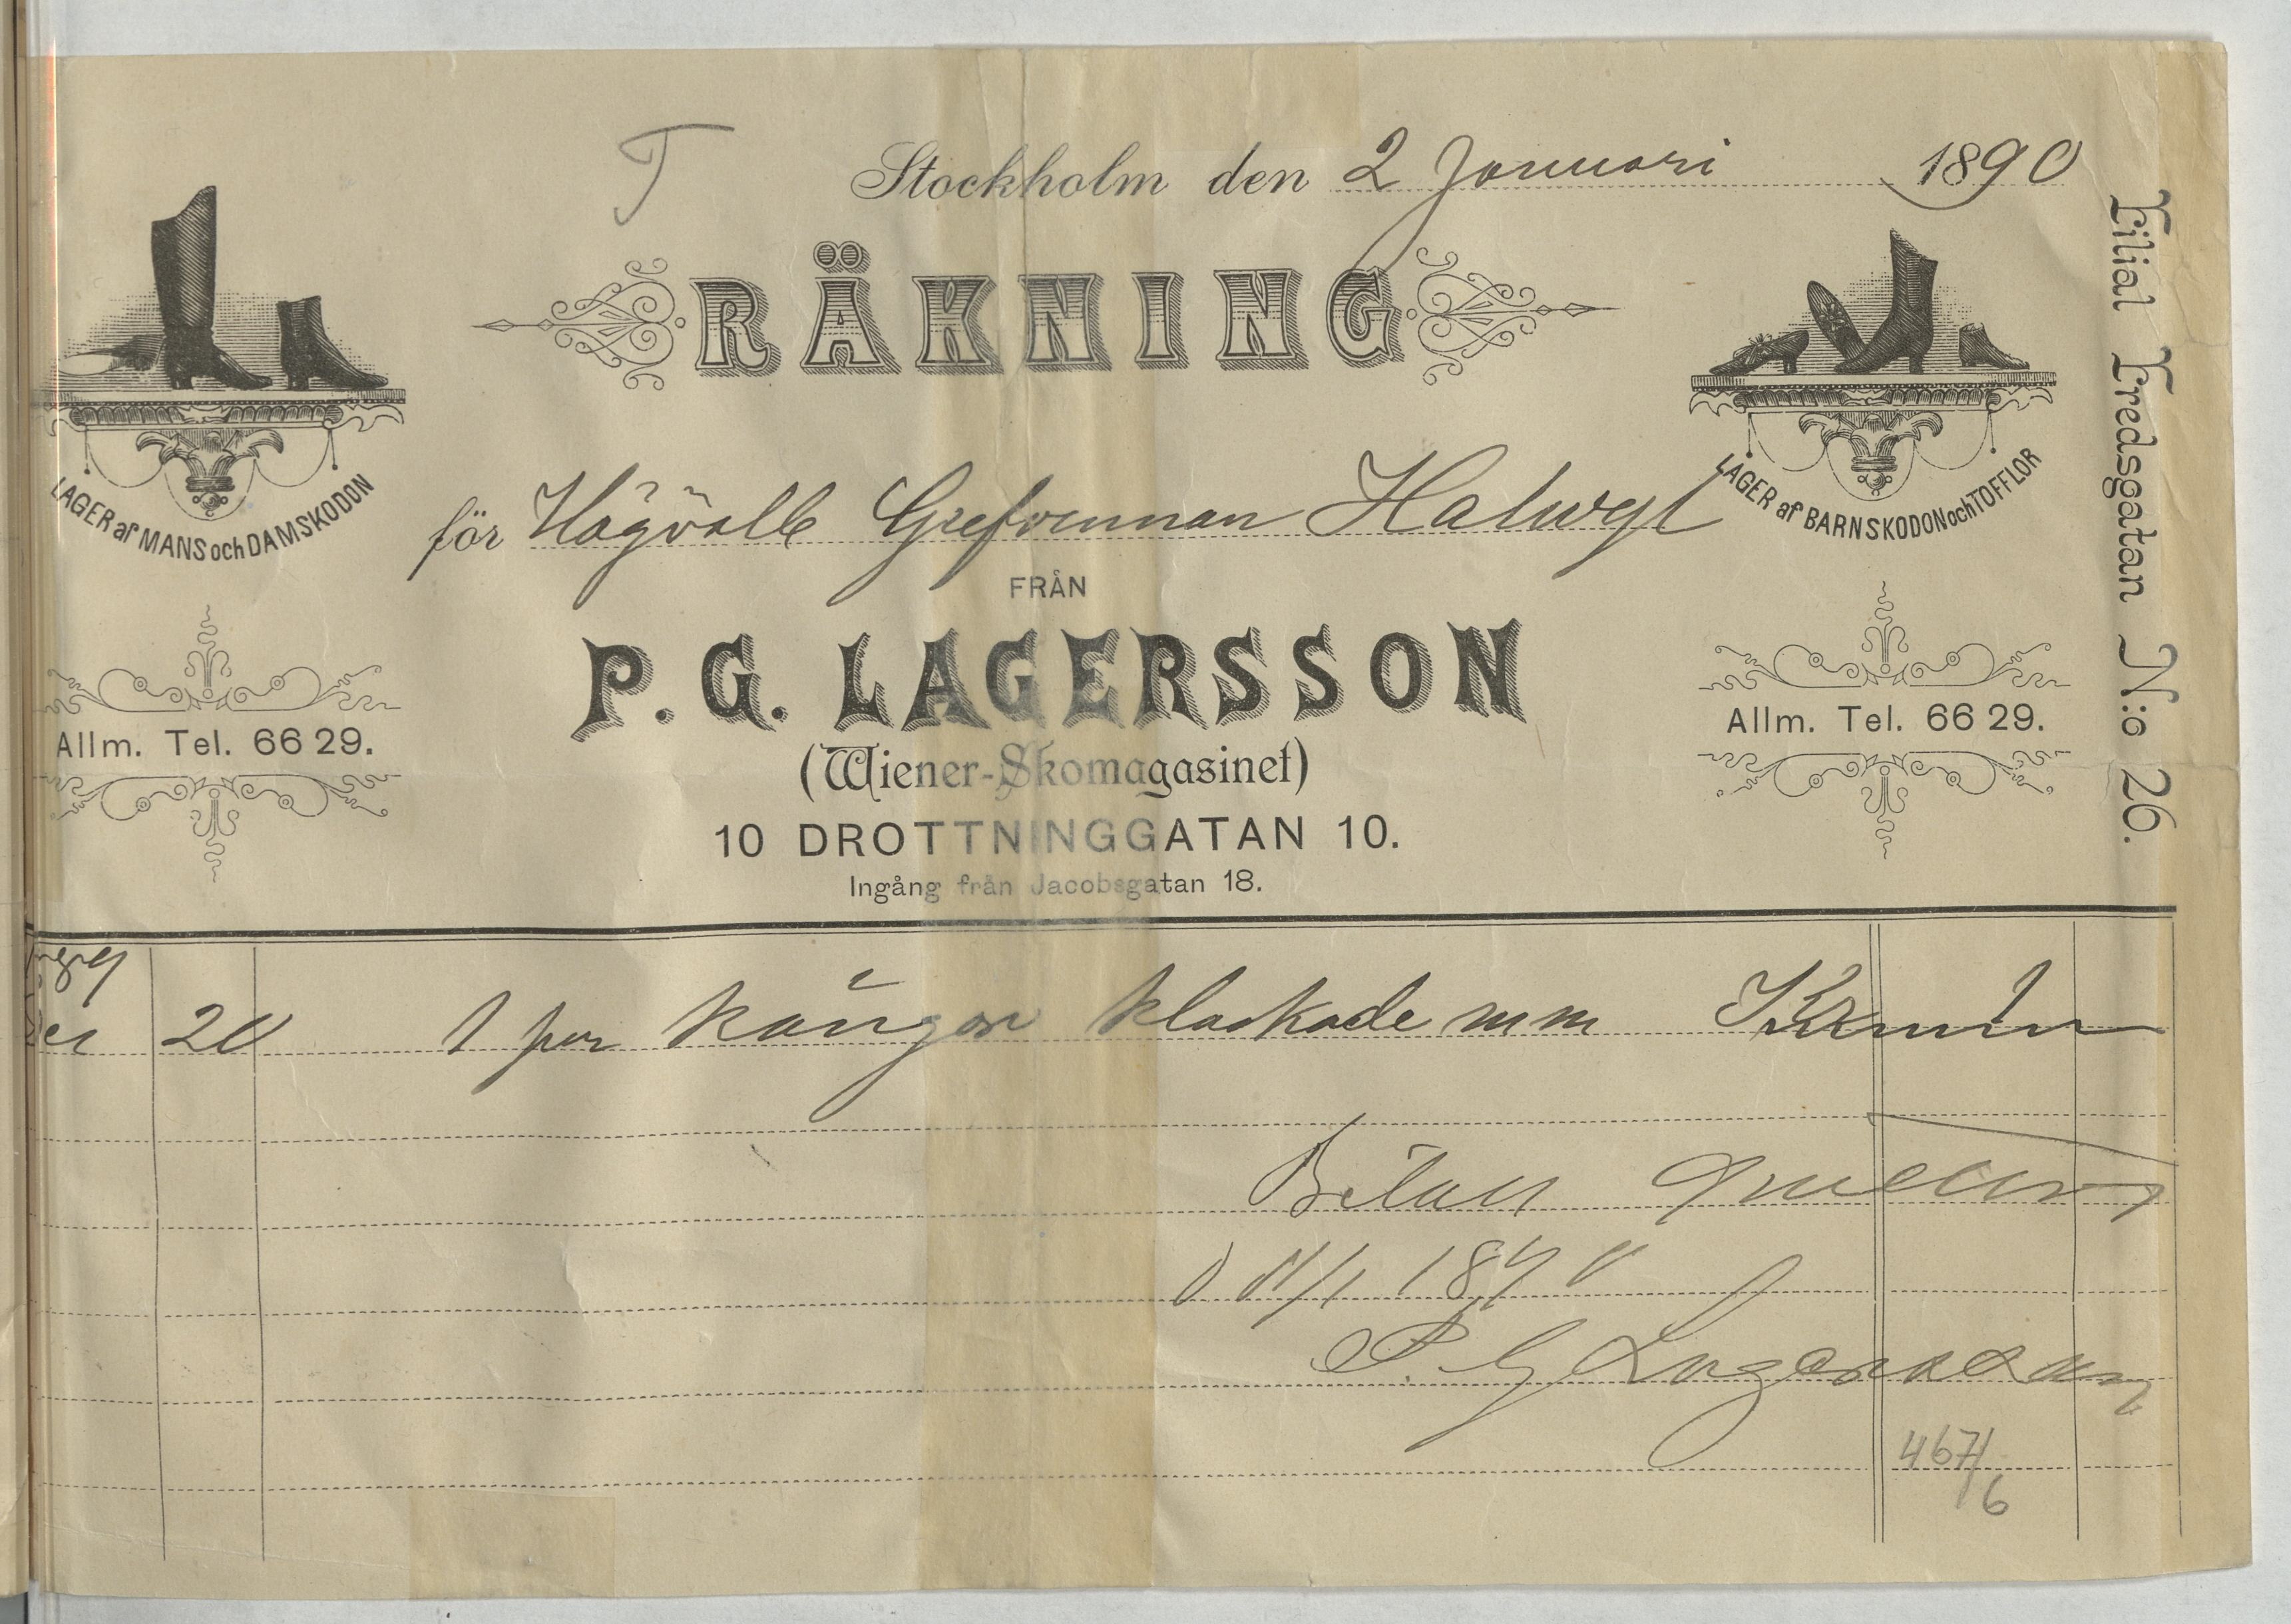 T
Stockholm den 2 Januari 1890
RÄKNING
för Högvälb Grefvinnan Halwyl
FRÅN
P. G. LAGERSSON
(Wiener-Skomagasinet)
10 DROTTNINGGATAN 10.
Ingång från Jacobsgatan 18.
LAGER af MANS och DAMSKODON
Allm. Tel. 66 29.
LAGER af BARNSKODON och TOFFLOR
Allm. Tel. 66 29.
Filial Fredsgatan N:o 26.
20 1 par kängor klackade mm Kr
Betalt
1890
P. G Lagersson
467/6